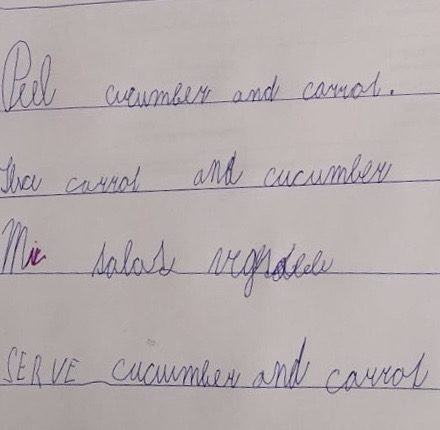 Peel cucumber and carrot.
Slice carrot and cucumber
Mix salad
SERVE cucumber and carrot